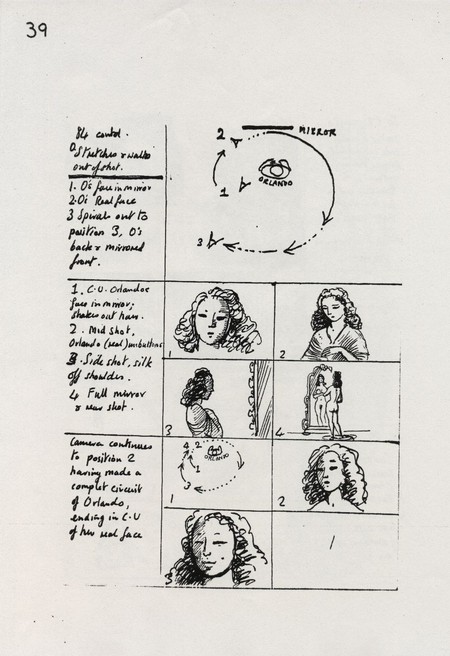 39
84 contd.
O. Stretches & walks
out of shot.
1. O's face in mirror
2. O's Real face
3 Spirals out to
position 3, O's
back & mirrored
front.
2
MIRROR
ORLANDO
1
3
1. C.U. Orlandoe
face in mirror;
shakes out hair.
2. Mid shot.
Orlando (real) unbuttons
3. Side shot, silk
off shoulder.
4 Full mirror
& rear shot.
1
2
3
4
Camera continues
to position 2
having made a
complet circuit
of Orlando,
ending in C.U
of her real face
4 2
ORLANDO
1
3
1
2
3
1